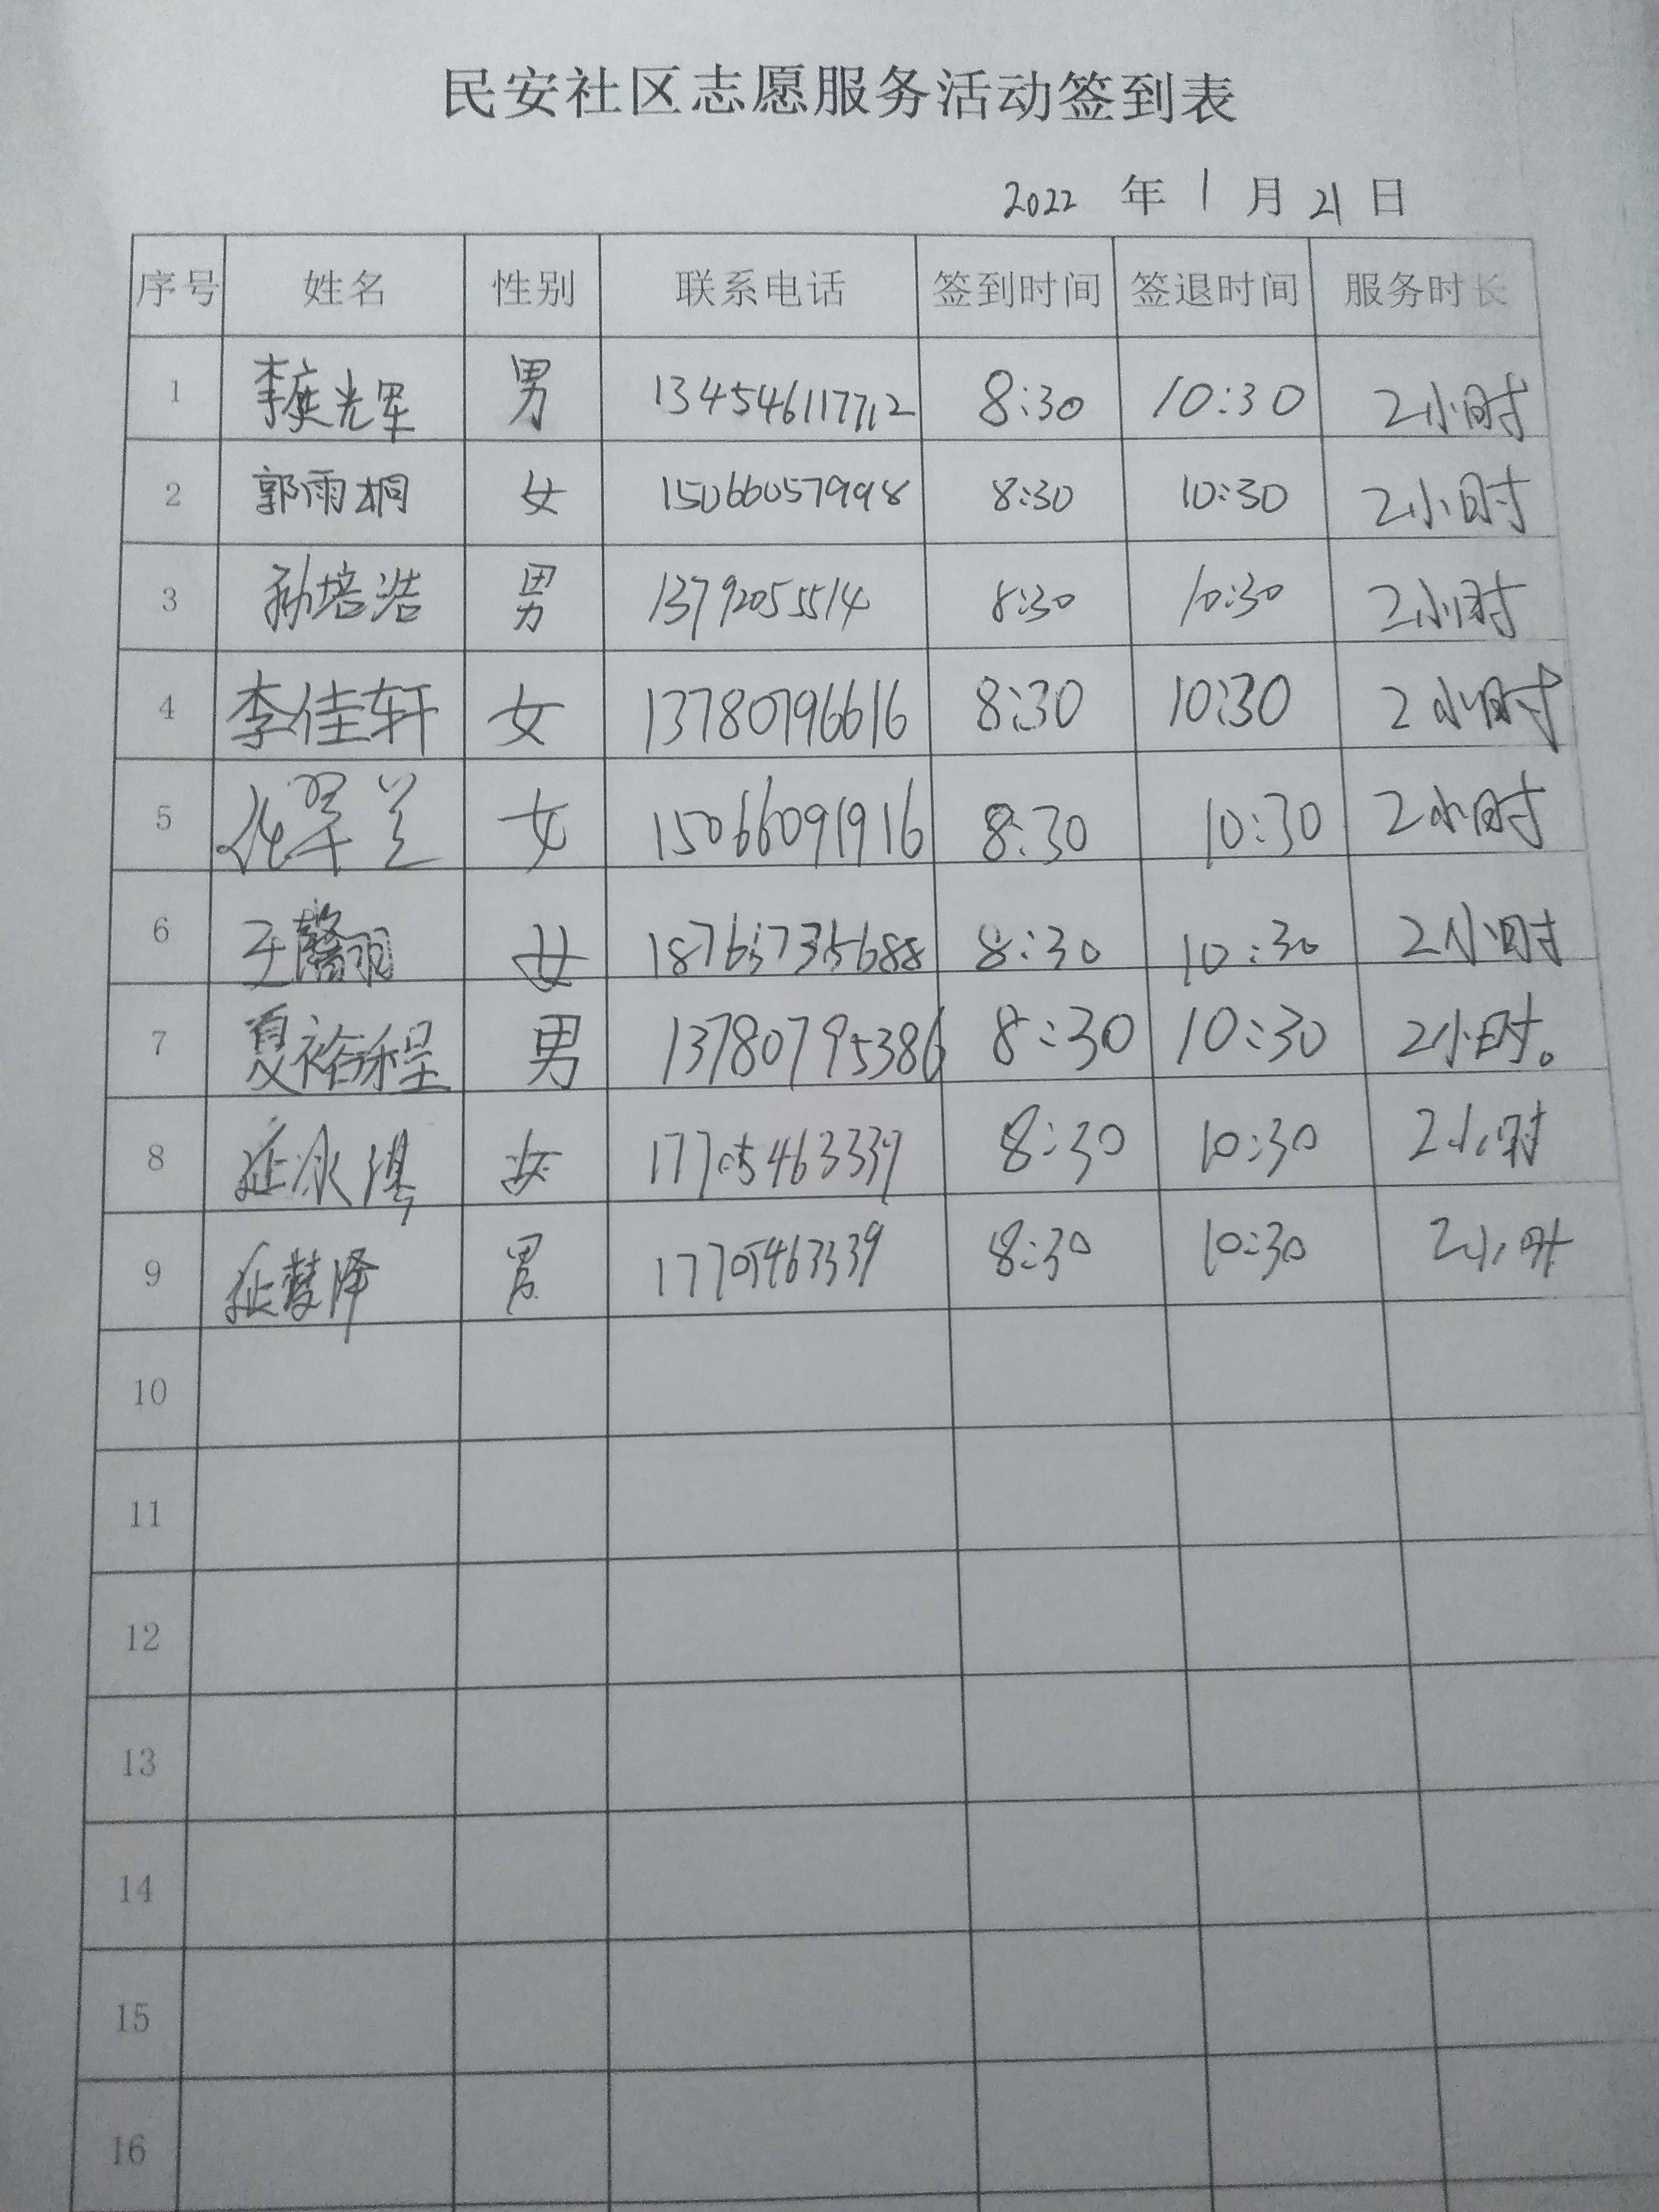 民安社区志愿服务活动签到表
2022 年 1 月 21 日
序号 姓名 性别 联系电话 签到时间 签退时间 服务时长
1 李庭光军 男 8:30 10:30 2小时
2 郭雨桐 女 15066057998 8:30 10:30 2小时
3 孙培浩 男 1379205514 8:30 10:30 2小时
4 李佳轩 女 13780796616 8:30 10:30 2小时
5 女 15066091916 8:30 10:30 2小时
6 王馨羽 女 8:30 10:30 2小时
7 夏裕程 男 13780795386 8:30 10:30 2小时。
8 女 17705463339 8:30 10:30 2小时
9 男 17705463339 8:30 10:30 2小时
10
11
12
13
14
15
16